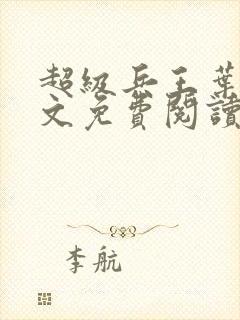 超级兵王葉
文免費閱讀
李航